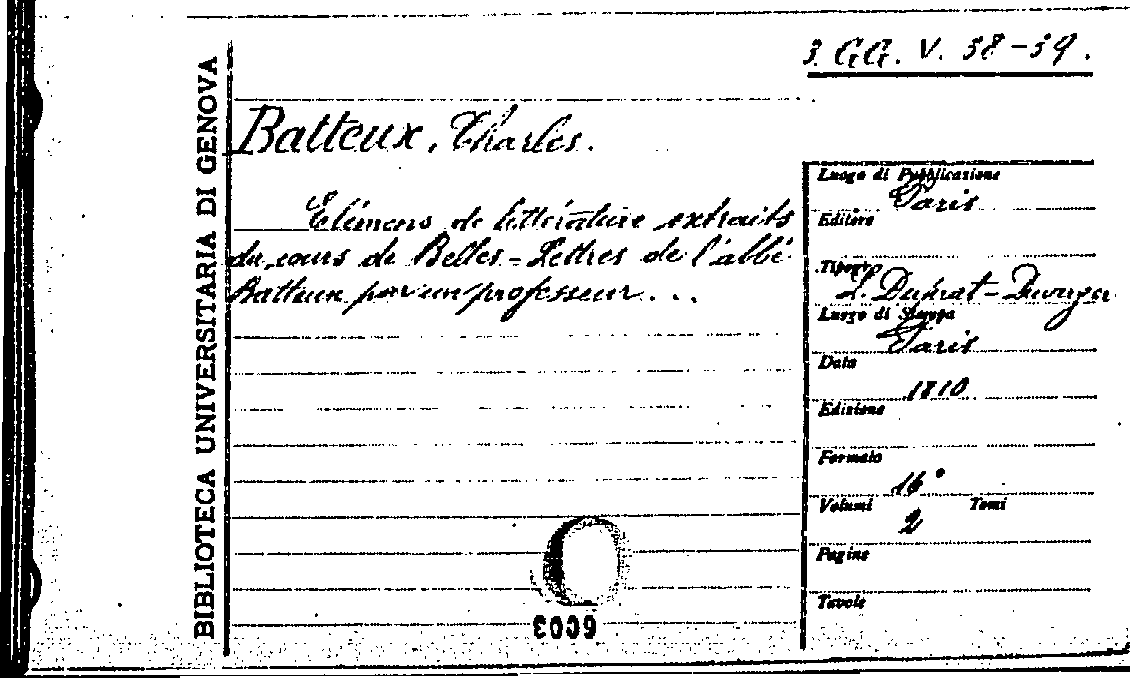 3. GG. V. 38-39.
BIBLIOTECA UNIVERSITARIA DI GENOVA
Batteux, Charles.
Elémens de littérature extraits
du cours de Belles-Lettres de l'abbé
Batteux par un professeur...
Luogo di Pubblicazione
Paris
Editore
Tipogro
L. Duprat-Duverger
Luogo di Stampa
Paris
Data
1810
Edizione
Formato
16°
Volumi Tomi
2
Pagine
Tavole